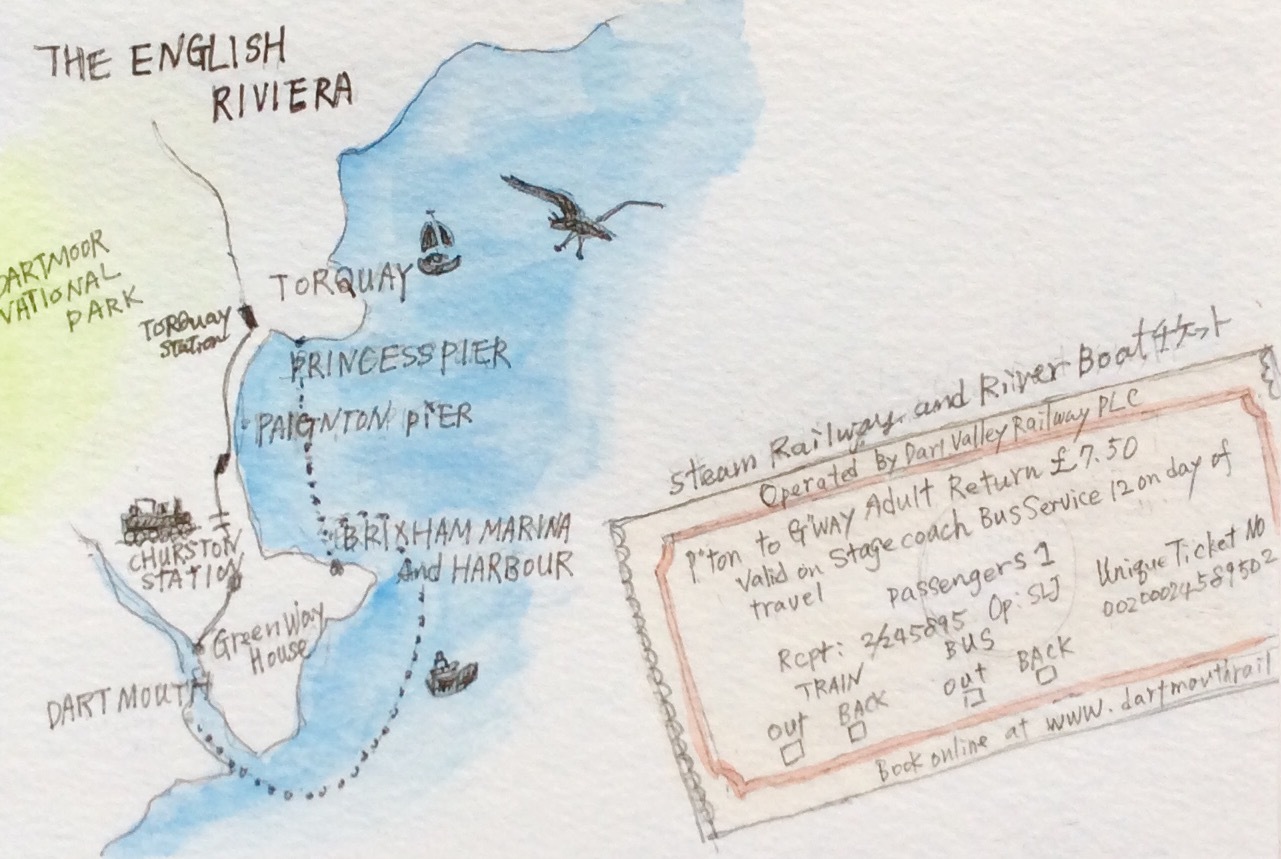 THE ENGLISH
RIVIERA
DARTMOOR
NATIONAL
PARK
TORQUAY
TORQUAY
Station
PRINCESS PIER
PAIGNTON PIER
BRIXHAM MARINA
And HARBOUR
CHURSTON
STATION
GreenWay
House
DARTMOUTH
Steam Railway and River Boat チケット
Operated By Dart Valley Railway PLC
P'ton to G'WAY Adult Return £7.50
Valid on Stagecoach Bus Service 12 on day of
travel
Passengers 1
Unique Ticket No
Rcpt: 2/245895 Op: SLJ
00200024589502
TRAIN
BUS
out BACK
out BACK
Book online at www.dartmouthrail